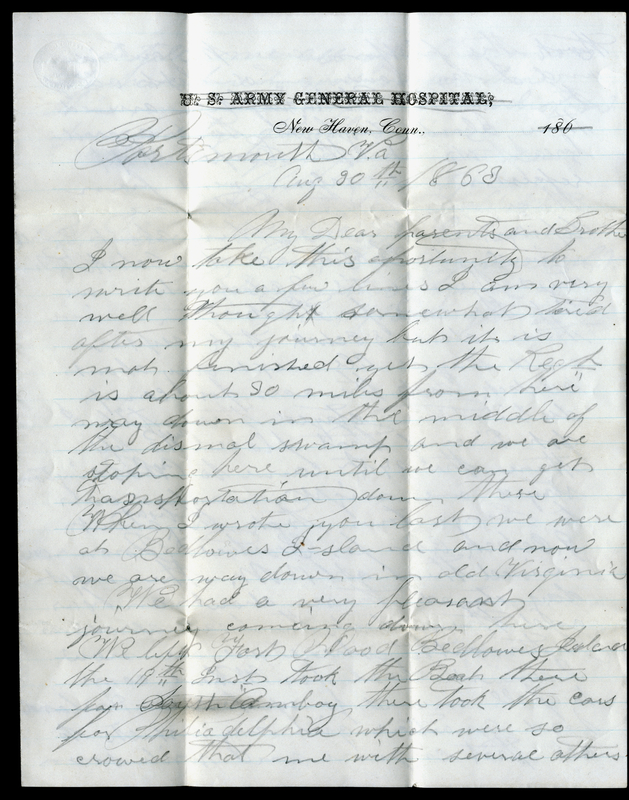 U. S. ARMY GENERAL HOSPITAL,
New Haven, Conn., 186
Portsmouth Va
Aug 20th /1863
My Dear parents and Brothe
I now take this oportunity to
write you a few lines I am very
well though somewhat tired
after my journey but it is
not finished yet the Regt
is about 30 miles from here
way down in the middle of
the dismal swamp and we are
stoping here until we can get
transportation down there
When I wrote you last we were
at Bedlowes Island and now
we are way down in old Virginia
We had a very pleasant
journey comeing down here
We left Fort Wood Bedlowes Island
the Inst took the Boat there
for South Amboy there took the cars
for Philidelphia which were so
crowed that me with several others